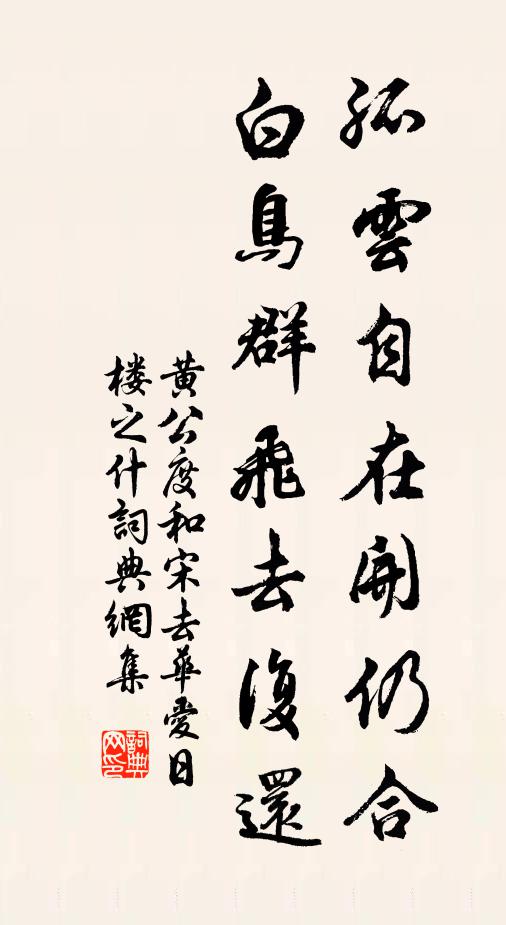 孤雲自在開仍合
白鳥群飛去復還
黄公度和宋去華愛日
楼之什詞典網集
詞典
网印